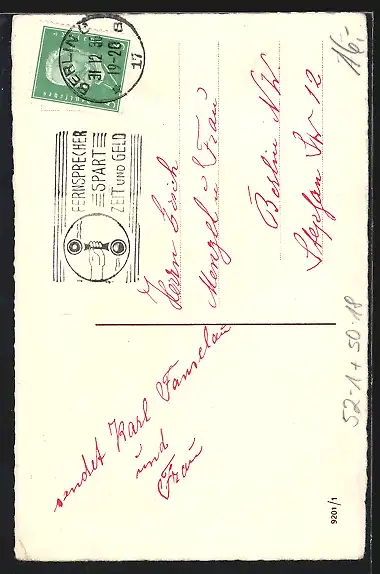 BERLIN
31.12.30
19-20
8
17
FERNSPRECHER
SPART
ZEIT UND GELD
16,-
Herrn Erich
Menzel u Frau
Berlin NW
Stephan Str 12
sendet Karl
und
Frau
52-1+50-18
9201/1